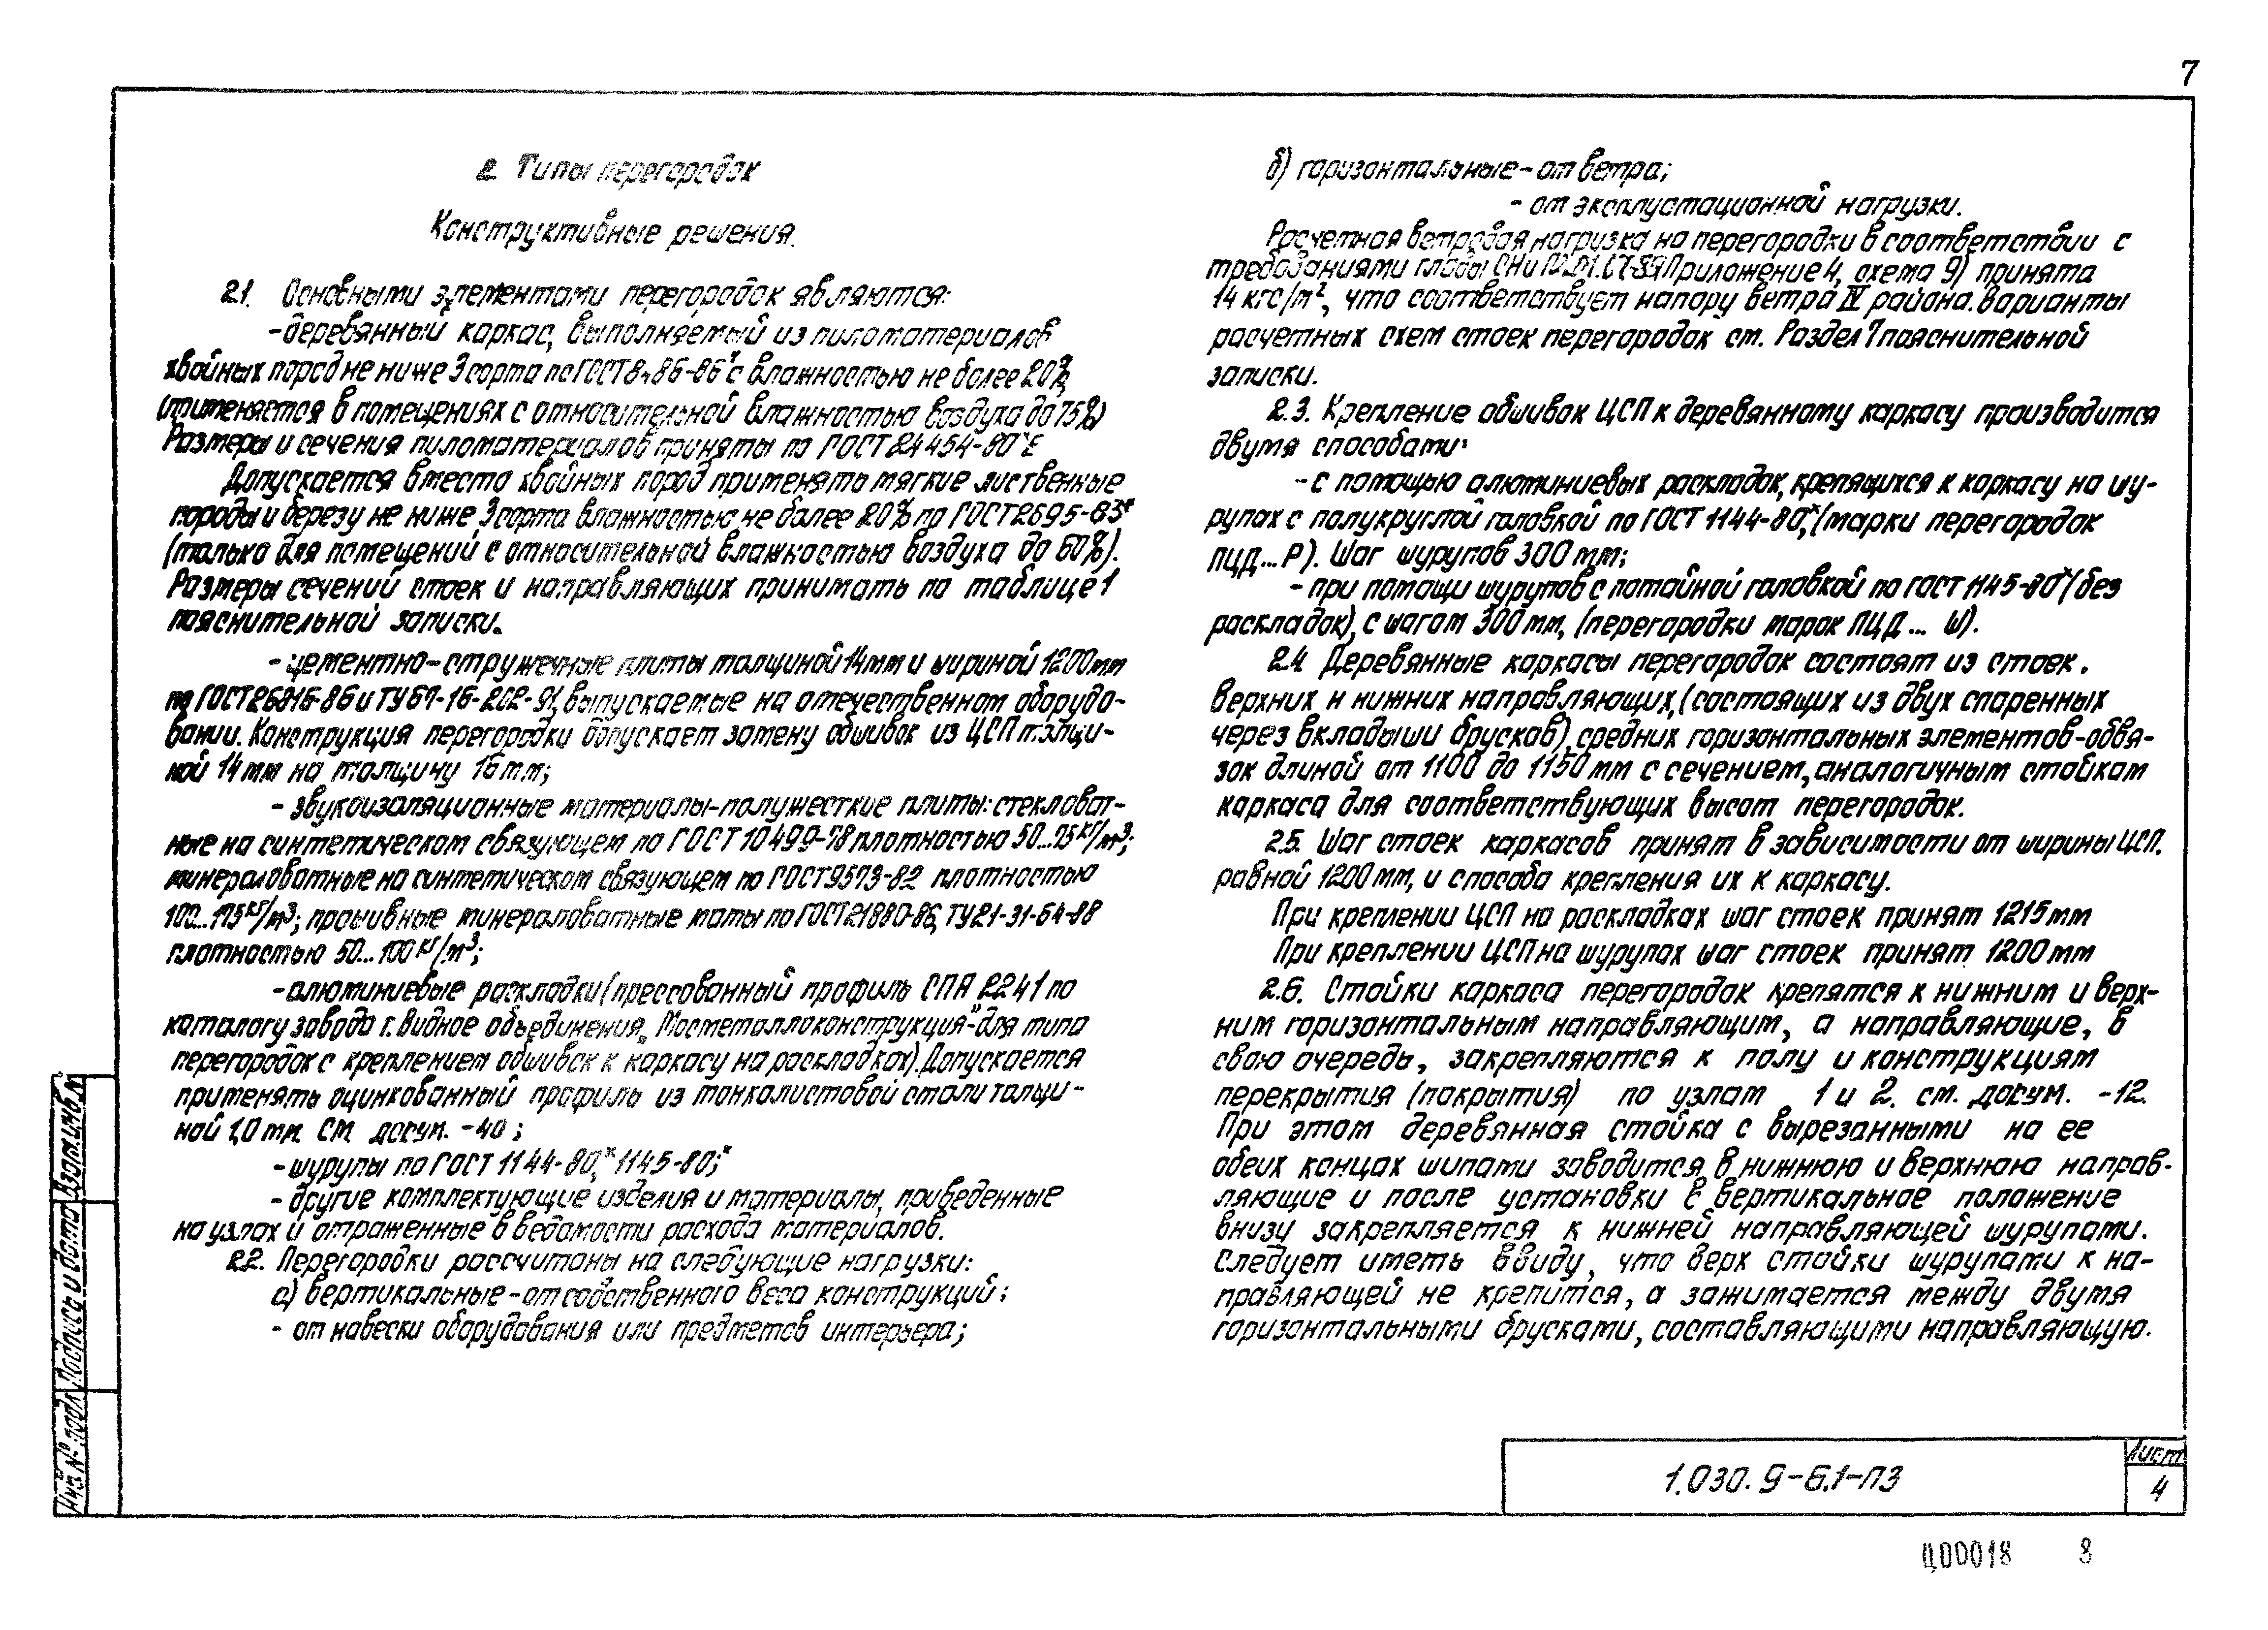 7
2 Типы перегородок
Конструктивные решения.
2.1. Основными элементами перегородок являются:
-деревянный каркас, выполняемый из пиломатериалов
хвойных пород не ниже 3 сорта по ГОСТ 8486-86* с влажностью не более 20%,
(применяется в помещениях с относительной влажностью воздуха до 75%)
Размеры и сечения пиломатериалов приняты по ГОСТ 24454-80*Е
Допускается вместо хвойных пород применять мягкие лиственные
породы и березу не ниже 3 сорта влажностью не более 20% по ГОСТ 2695-83*
(только для помещений с относительной влажностью воздуха до 60%).
Размеры сечений стоек и направляющих принимать по таблице 1
пояснительной записки.
-цементно-стружечные плиты толщиной 14мм и шириной 1200мм
по ГОСТ 26816-86 и ТУ 67-16-202-91, выпускаемые на отечественном оборудо-
вании. Конструкция перегородки допускает замену обшивок из ЦСП толщи-
ной 14мм на толщину 16мм;
- звукоизоляционные материалы-полужесткие плиты: стекловат-
ные на синтетическом связующем по ГОСТ 10499-78 плотностью 50...75 кг/м³;
минераловатные на синтетическом связующем по ГОСТ 9573-82 плотностью
100...175 кг/м³; прошивные минераловатные маты по ГОСТ 21880-86, ТУ 21-31-64-88
плотностью 50...100 кг/м³;
-алюминиевые раскладки (прессованный профиль СПА 2241 по
каталогу завода г. Видное объединения „Мосметаллоконструкция"-для типа
перегородок с креплением обшивок к каркасу на раскладках). Допускается
применять оцинкованный профиль из тонколистовой стали толщи-
ной 1,0 мм. См. докум. -40;
-шурупы по ГОСТ 1144-80,* 1145-80;*
- другие комплектующие изделия и материалы, приведенные
на узлах и отраженные в ведомости расхода материалов.
2.2. Перегородки рассчитаны на следующие нагрузки:
а) вертикальные-от собственного веса конструкций;
- от навески оборудования или предметов интерьера;
б) горизонтальные-от ветра;
- от эксплуатационной нагрузки.
Расчетная ветровая нагрузка на перегородки в соответствии с
требованиями главы СНиП 2.01.07-85 (Приложение 4, схема 9) принята
14 кгс/м², что соответствует напору ветра IV района. Варианты
расчетных схем стоек перегородок см. Раздел 7 пояснительной
записки.
2.3. Крепление обшивок ЦСП к деревянному каркасу производится
двумя способами:
-с помощью алюминиевых раскладок, крепящихся к каркасу на шу-
рупах с полукруглой головкой по ГОСТ 1144-80,* (марки перегородок
ПЦД...Р). Шаг шурупов 300 мм;
- при помощи шурупов с потайной головкой по ГОСТ 1145-80* (без
раскладок), с шагом 300 мм, (перегородки марок ПЦД... Ш).
2.4. Деревянные каркасы перегородок состоят из стоек.
верхних и нижних направляющих, (состоящих из двух спаренных
через вкладыши брусков), средних горизонтальных элементов-обвя-
зок длиной от 1100 до 1150 мм с сечением, аналогичным стойкам
каркаса для соответствующих высот перегородок.
2.5. Шаг стоек каркасов принят в зависимости от ширины ЦСП,
равной 1200 мм, и способа крепления их к каркасу.
При креплении ЦСП на раскладках шаг стоек принят 1215 мм
При креплении ЦСП на шурупах шаг стоек принят 1200 мм
2.6. Стойки каркаса перегородок крепятся к нижним и верх-
ним горизонтальным направляющим, а направляющие, в
свою очередь, закрепляются к полу и конструкциям
перекрытия (покрытия) по узлам 1 и 2. см. докум. -12.
При этом деревянная стойка с вырезанными на ее
обеих концах шипами заводится в нижнюю и верхнюю направ-
ляющие и после установки в вертикальное положение
внизу закрепляется к нижней направляющей шурупами.
Следует иметь ввиду, что верх стойки шурупами к на-
правляющей не крепится, а зажимается между двумя
горизонтальными брусками, составляющими направляющую.
Инв. № подл. Подпись и дата Взам. инв. №
1.030.9-6.1-ПЗ
Лист
4
Ц00018 8